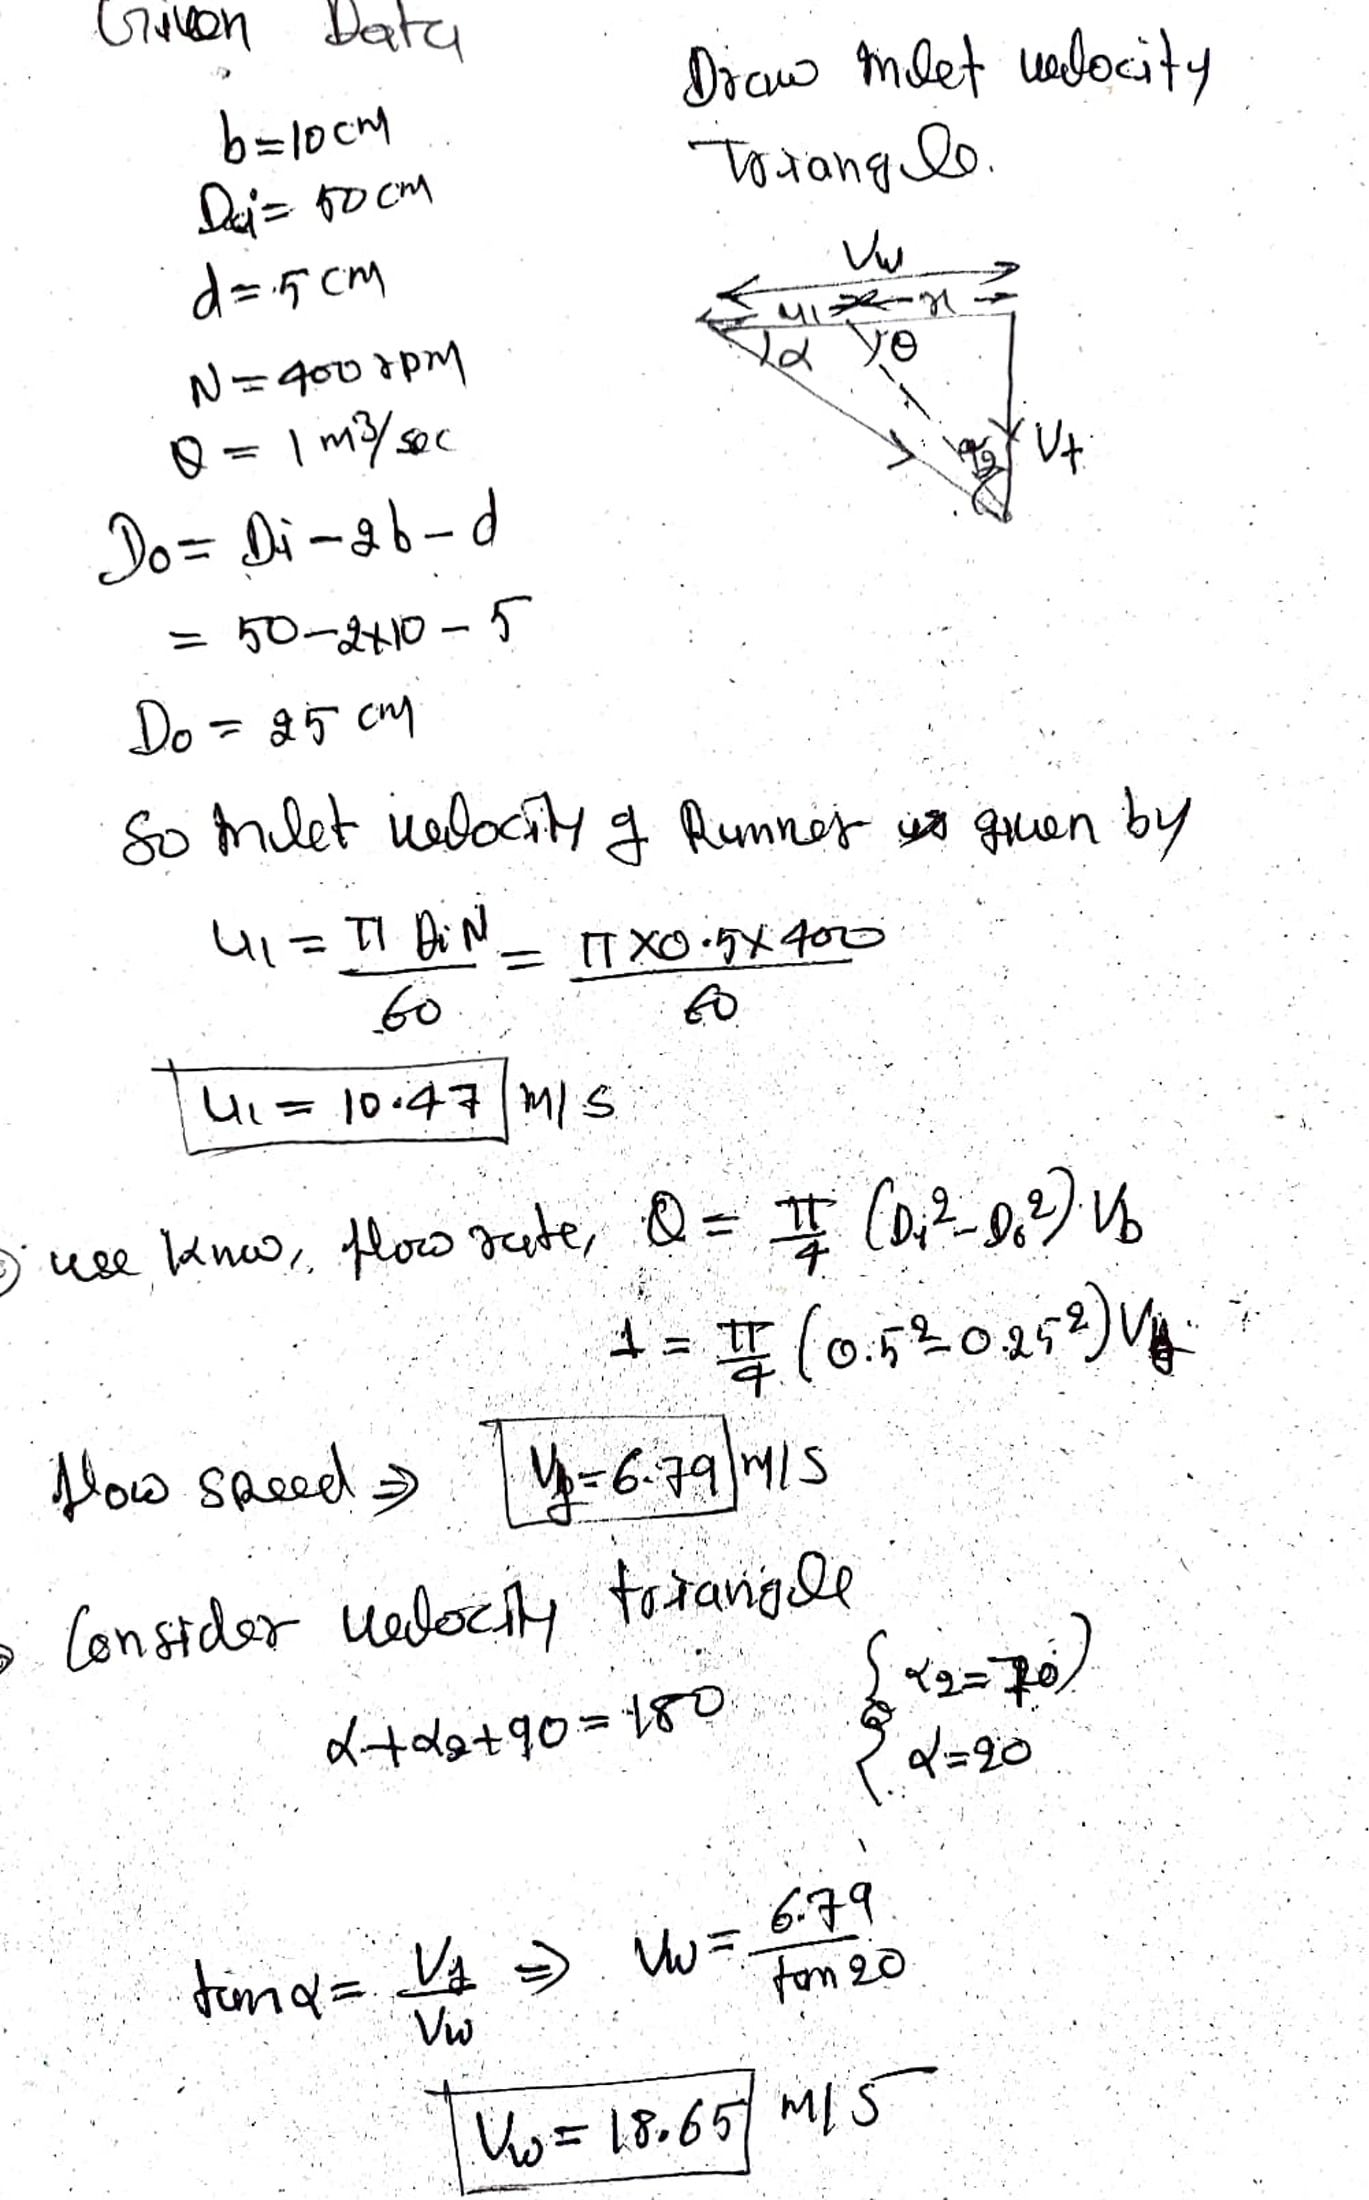 Given Data
b=10cm
Di= 50 cm
d=.5 cm
N=400 rpm
Q = 1 m3/sec
Do= Di -2b-d
= 50-2x10-5
Do = 25 cm
Draw Inlet velocity
Triangle.
Vw
u1 x
α θ
α2 Vf
So Inlet velocity of Runner is given by
u1 = π Di N / 60 = π x0.5x400 / 60
u1 = 10.47 m/s
we know, flow rate, Q = π/4 (Di2-Do2) Vb
1 = π/4 (0.52-0.252) V
flow speed ⇒ Vf=6.79 m/s
Consider velocity triangle
α+α2+90=180 { α2=70
α=20
tanα= Vf/Vw ⇒ Vw= 6.79/tan20
Vw= 18.65 m/s